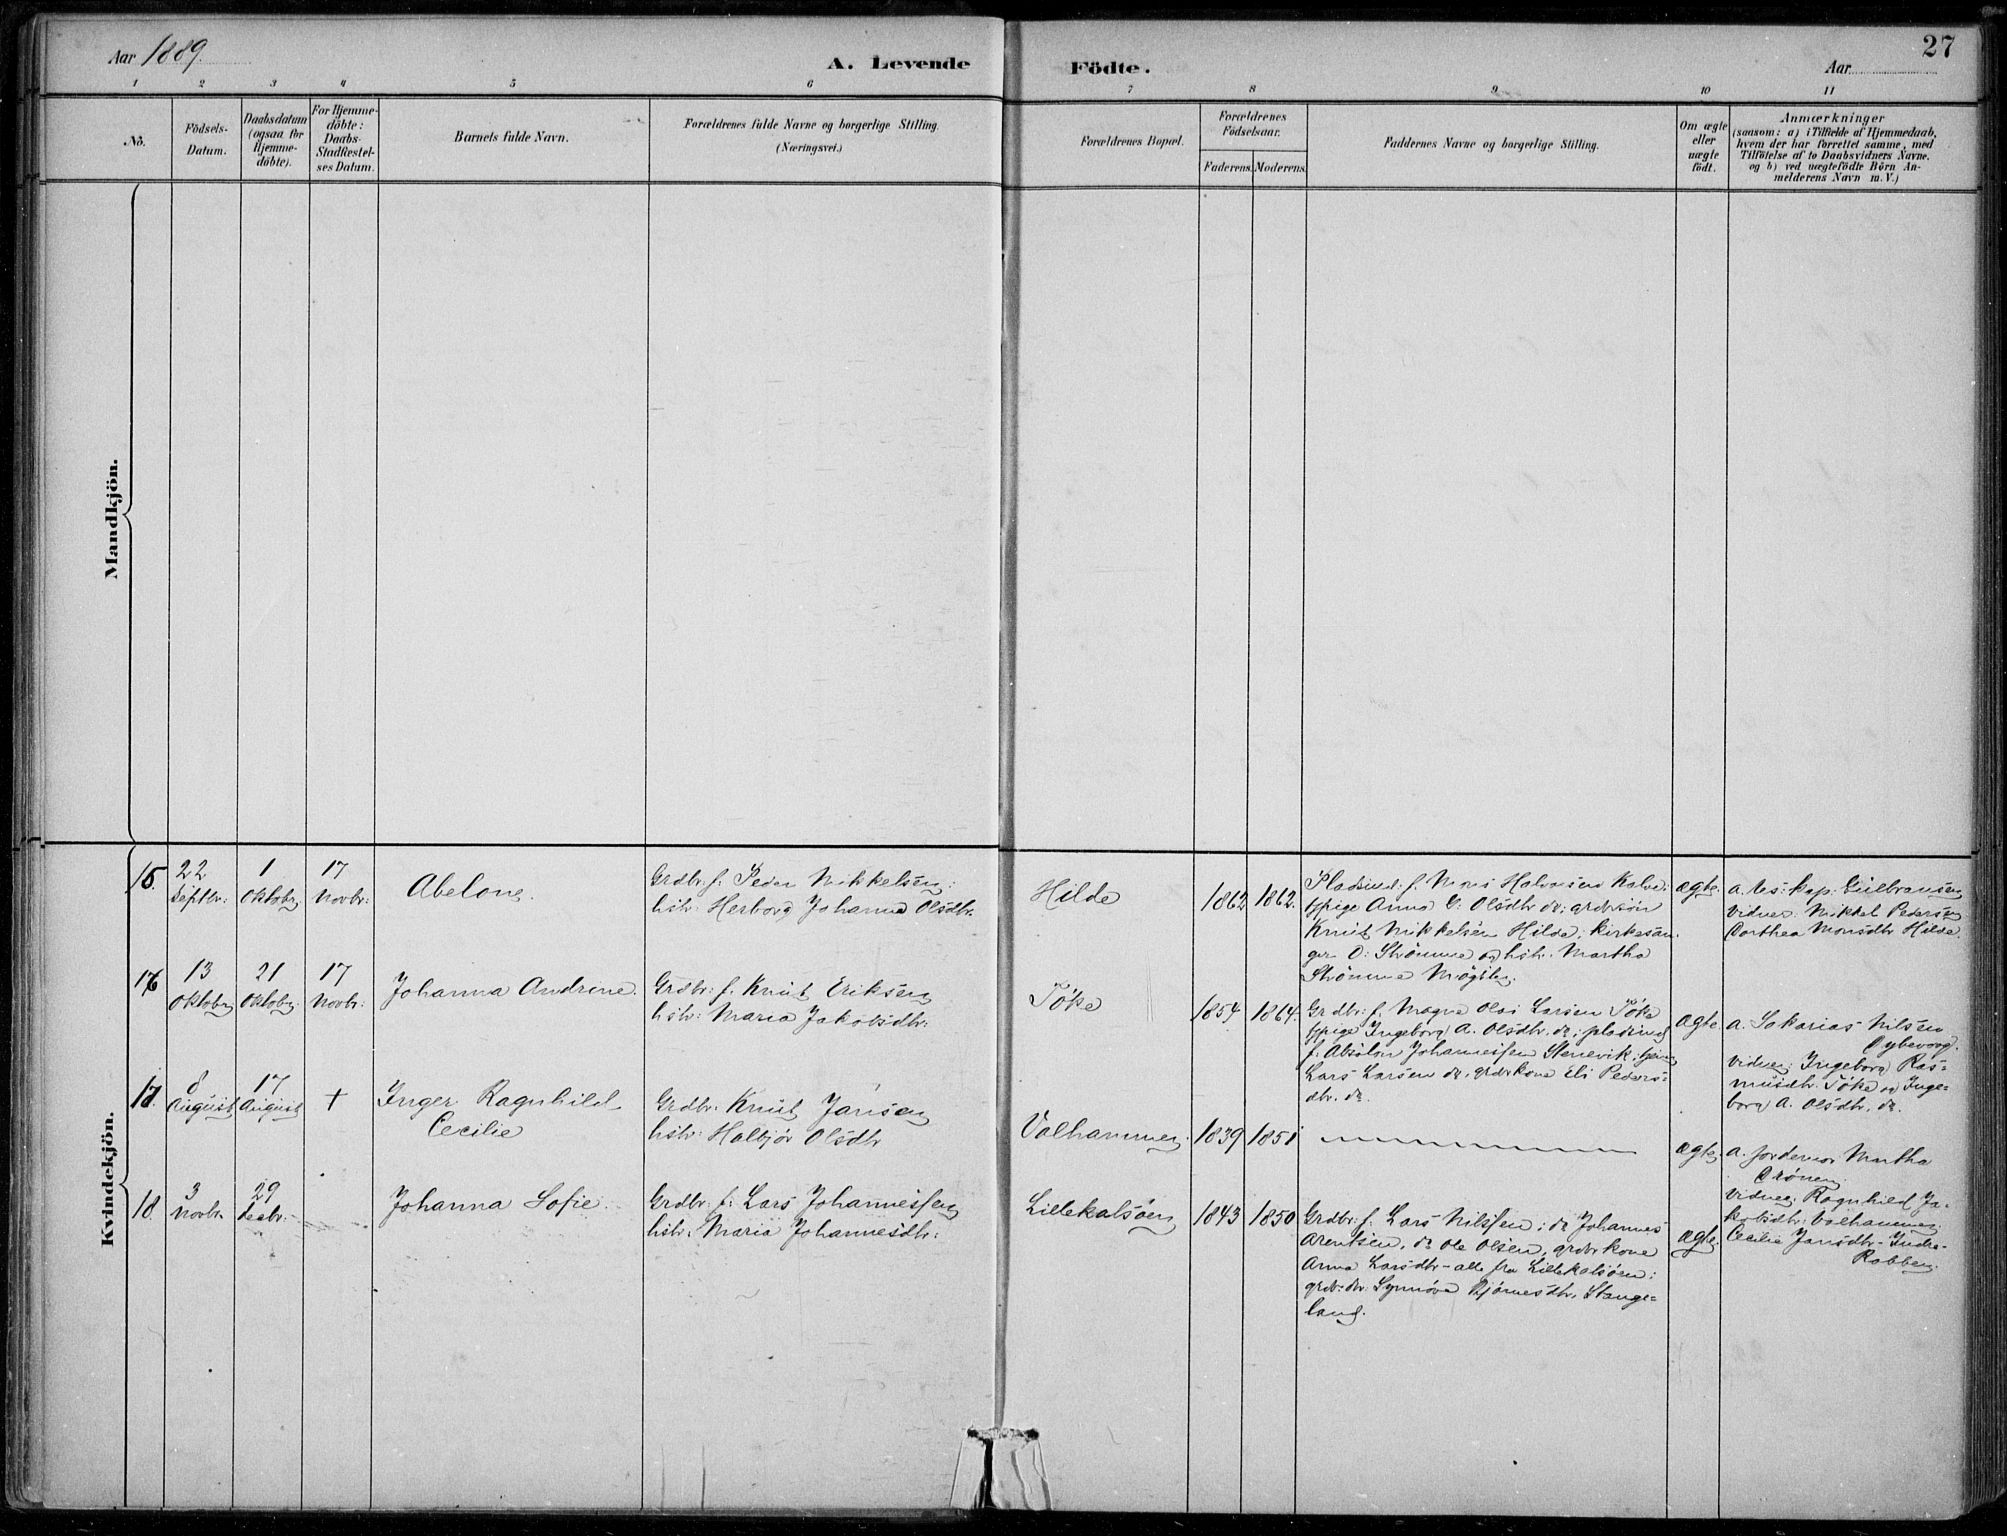 Aar 1889.
A. Levende
Födte.
Aar
27
1 2 3 4 5 6 7 8 9 10 11
No.
Födsels-
Datum.
Daabsdatum
(ogsaa for
Hjemme-
döbte).
For Hjemme-
döbte:
Daabs-
Stadfæstel-
ses Datum.
Barnets fulde Navn.
Forældrenes fulde Navne og borgerlige Stilling.
(Næringsvei.)
Forældrenes Bopæl.
Forældrenes
Födselsaar.
Faderens. Moderens.
Faddernes Navne og borgerlige Stilling.
Om ægte
eller
uægte
födt.
Anmærkninger
(saasom: a) i Tilfælde af Hjemmedaab,
hvem der har forrettet samme, med
Tilföielse af to Daabsvidners Navne.
og b) ved uægtefödte Börn An-
melderens Navn m. V.)
Mandkjön.
Kvindekjön.
15.
22
Septbr:
1
Oktober
17
Novbr:
Abelone.
Grdbr: f. Peder Mikkelsen:
hstr: Herborg Johanna Olsdtr.
Hilde
1862 1862.
Pladsmd: f. Mons Halvorsen Kalve:
fpige Anna O: Olsdtr do: grdbrsön
Knut Mikkelsen Hilde: kirkesan-
ger O: Strömme og hstr. Martha
Strömme Mögster.
ægte.
Vidner: Mikkel Pedersen
Dorthea Monsdtr Hilde.
16
13
Oktober
21
Oktober
17
Novbr:
Johanna Andrine.
Grdbr: f. Knut Eriksen
hstr: Maria Jakobsdtr:
Töke
1854 1864.
Grdbr: f. Magne Olai Larsen Töke
fpige Ingeborg A. Olsdtr. do: pladsmd
f. Absalon Johannessen Stenevik:
Lars Larsen do. grdbrkone Eli Peders-
dtr. do.
ægte
a. Sakarias Nilsen
Vidner: Ingeborg Ras-
musdtr. Töke og Inge-
borg A. Olsdtr. do.
17.
8
August
17
August
+
Inger Ragnhild
Cecilie
Grdbr: Knut Jansen
hstr: Halbjör Olsdtr
Valhammer.
1839 1851
ægte.
a. Jordemor Martha
Drönen
Vidner: Ragnhild Ja-
kobsdtr: Valhammer:
Cecilie Jansdtr- Indre-
Robben.
18.
3
Novbr.
29
Decbr:
Johanna Sofie.
Grdbr. f: Lars Johannessen
hstr: Maria Johannesdtr:
Lillekalsöen
1843 1850
Grdbr: f. Lars Nilssen: do Johannes
Arentsen, do Ole Olsen, grdbrkone
Anna Larsdtr - alle fra Lillekalsöen:
grdbrdtr: Synnöve Björnesdtr. Stange-
land.
ægte.